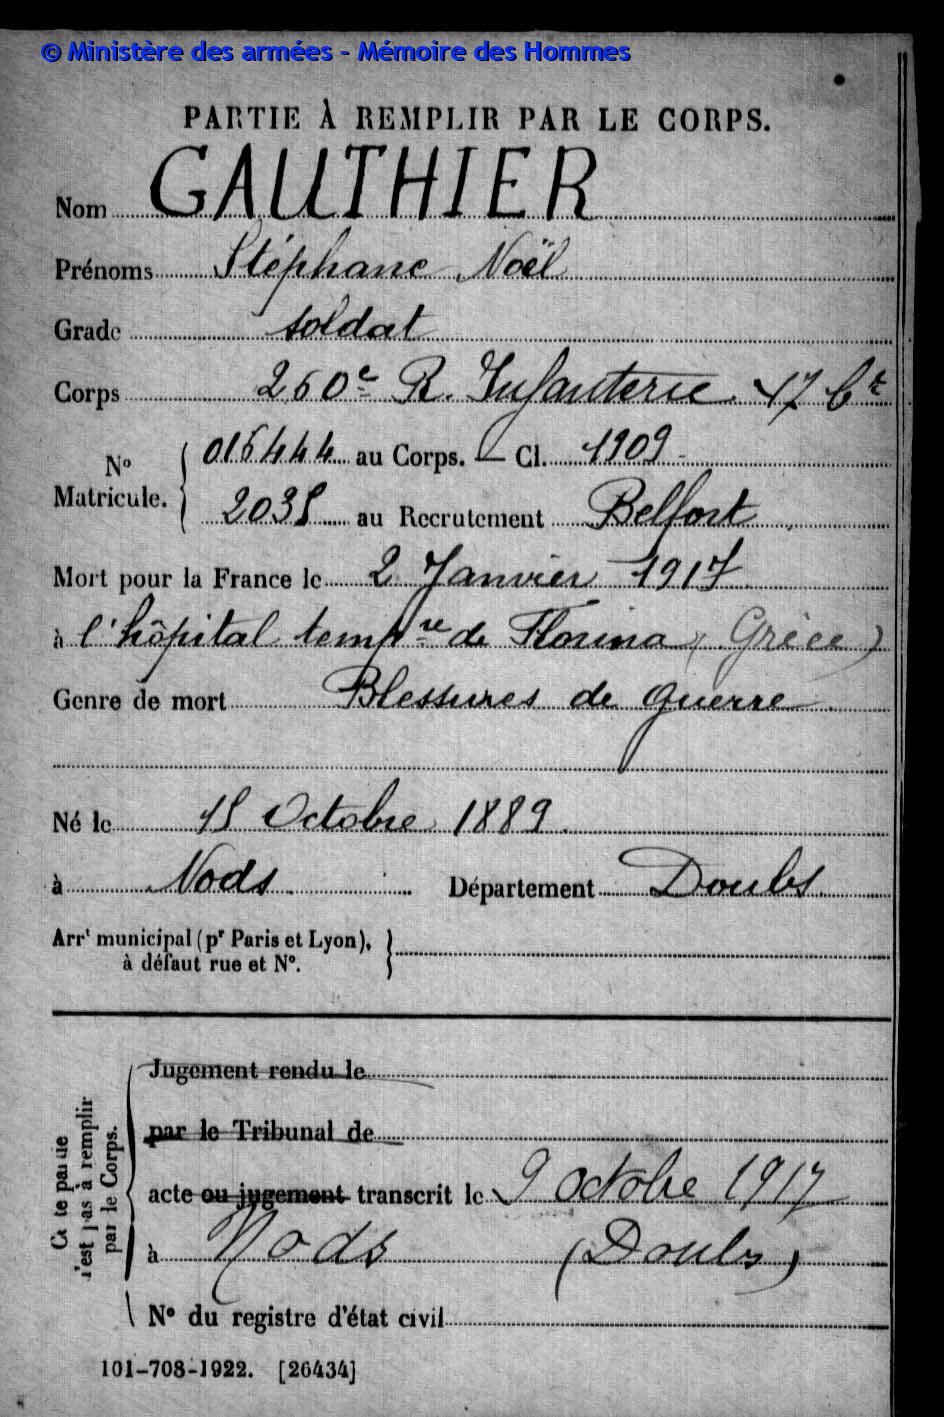 © Ministère des armées - Mémoire des Hommes
PARTIE À REMPLIR PAR LE CORPS.
Nom GAUTHIER
Prénoms Stéphane Noël
Grade soldat
Corps 260e R. Infanterie 17 Cie
No Matricule. { 016444 au Corps. — Cl. 1909
2035 au Recrutement Belfort
Mort pour la France le 2 Janvier 1917
à l'hôpital tempre de Florina (Grèce)
Genre de mort Blessures de guerre
Né le 15 Octobre 1889
à Nods Département Doubs
Arrt municipal (pr Paris et Lyon),
à défaut rue et No.
Cette partie n'est pas à remplir par le Corps.
Jugement rendu le
par le Tribunal de
acte ou jugement transcrit le 9 octobre 1917
à Nods (Doubs)
No du registre d'état civil
101-708-1922. [26434]